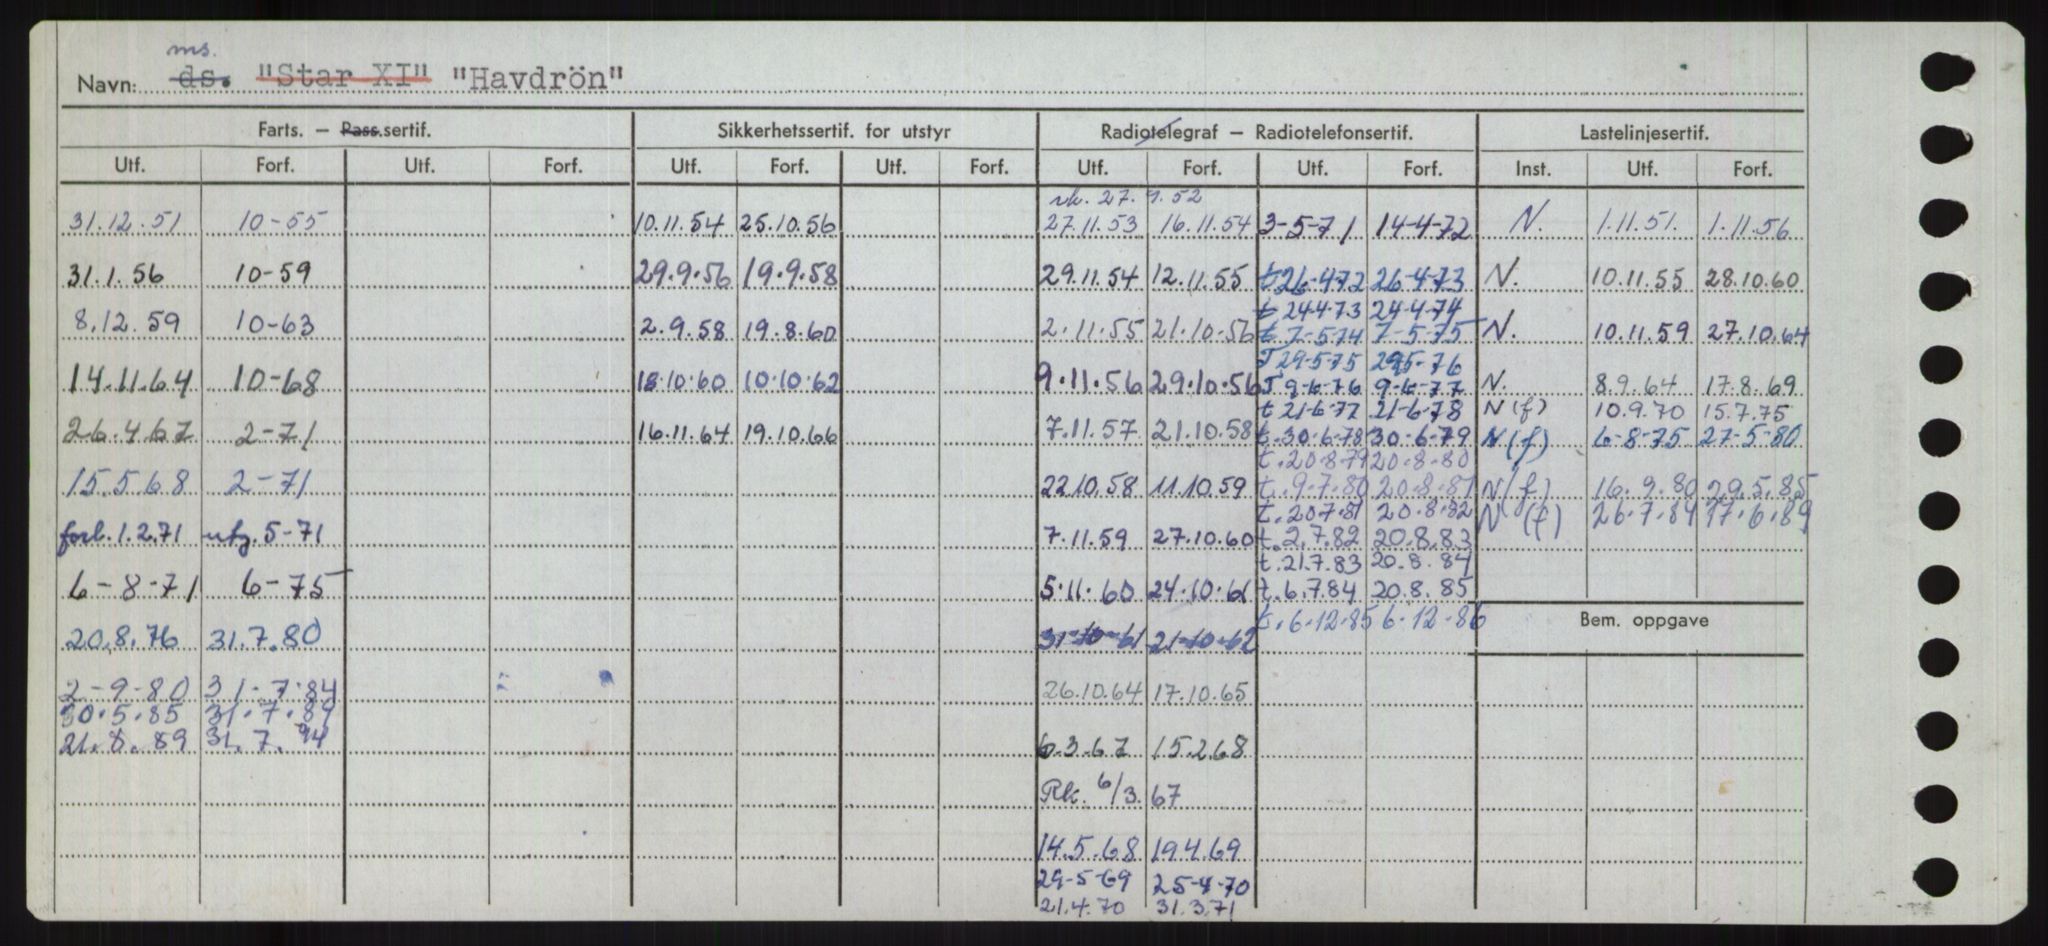 ms.
Navn: ds. "Star XI" "Havdrön"
Farts. — Pass.sertif. Sikkerhetssertif. for utstyr Radiotelegraf — Radiotelefonsertif. Lastelinjesertif.
Utf. Forf. Utf. Forf. Utf. Forf. Utf. Forf. Utf. Forf. Utf. Forf. Inst. Utf. Forf.
rk. 27.9.52
31.12.51 10-55 10.11.54 25.10.56 27.11.53 16.11.54 3-5-71 14-4-72 N. 1.11.51. 1.11.56
31.1.56 10-59 29.9.56 19.9.58 29.11.54 12.11.55 t 26-4-72 26-4-73 N. 10.11.55 28.10.60
t 24-4-73 24-4-74
8.12.59 10-63 2.9.58 19.8.60 2.11.55 21.10.56 t. 7-5-74 7-5-75 N. 10.11.59 27.10.64
T 29-5-75 295-76
14.11.64 10-68 18.10.60 10.10.62 9.11.56 29.10.56 T. 9-6-76 9-6-77 N. 8.9.64 17.8.69
t 21-6-77 21-6-78 N(f) 10.9.70 15.7.75
26.4.67 2-71 16.11.64 19.10.66 7.11.57 21.10.58 t. 30-6-78 30-6-79 N(f) 6-8-75 27-5-80
t. 20.8.79 20.8.80
15.5.68 2-71 22.10.58 11.10.59 t. 9.7.80 20.8.81 N(f) 16.9.80 29.5.85
t. 20.7.81 20.8.82 N(f) 26.7.84 17.6.89
forl. 1.2.71 utg. 5-71 7.11.59 27.10.60 t. 2.7.82 20.8.83
t. 21.7.83 20.8.84
6-8-71 6-75 5.11.60 24.10.61 t. 6.7.84 20.8.85
t. 6.12.85 6.12.86 Bem. oppgave
20.8.76 31.7.80 31-10-61 21-10-62
2-9-80 31-7-84 26.10.64 17.10.65
30.5.85 31.7.89
21.8.89 31.7.94 6.3.67 15.2.68
Rk. 6/3.67
14.5.68 19.4.69
29-5-69 25-4-70
21.4.70 31.3.71